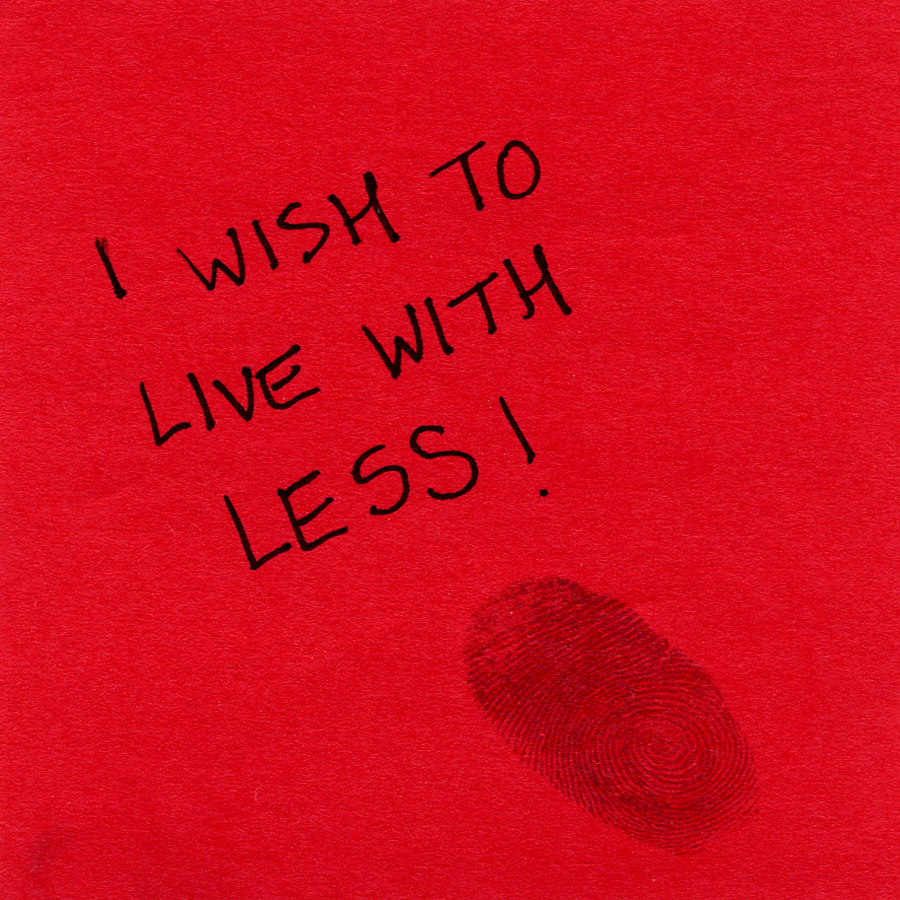 I WISH TO
LIVE WITH
LESS!